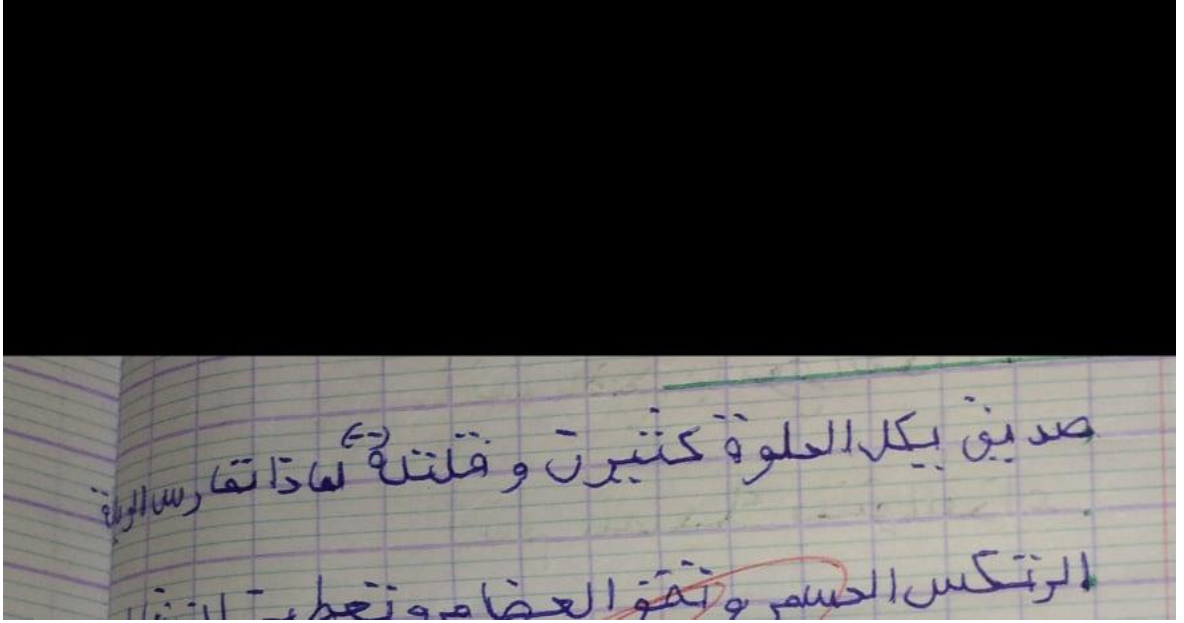 صديق يكل الحلوة كثيرت و قلتلة لماذا تما رس الرياة
الرتكس الجسم و تقو العضام و تعطي